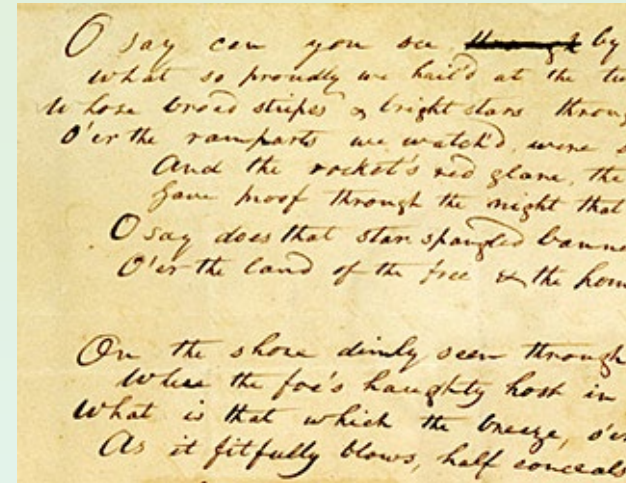 O say can you see through by
What so proudly we hail'd at the
Whose broad stripes & bright stars through
O'er the ramparts we watch'd, were
And the rocket's red glare, the
Gave proof through the night that
O say does that star spangled
O'er the land of the free & the
On the shore dimly seen through
Where the foe's haughty host in
What is that which the breeze, o'er
As it fitfully blows, half conceals